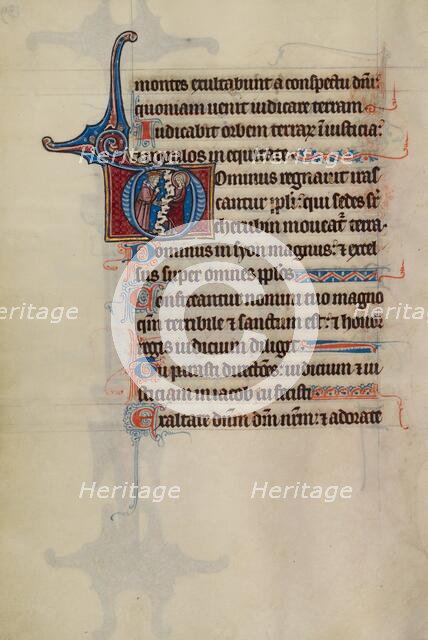 montes exultabunt a conspectu dni:
quoniam uenit iudicare terram
Iudicabit orbem terrar in iusticia:
populos in equitate
Dominus regnauit iras
cantur ppli: qui sedes sr
cherubin moueat terra
Dominus in syon magnus: & excel
sus super omnes pplos
Confiteantur nomini tuo magno
qm terribile & sanctum est: & honor
regis iudicium diligit
Tu parasti directões: iudicium & ius
ticiam in iacob tu fecisti
Exaltate dnm dm nrm: & adorate
Heritage
Heritage
Heritage
Heritage
Heritage
Heritage